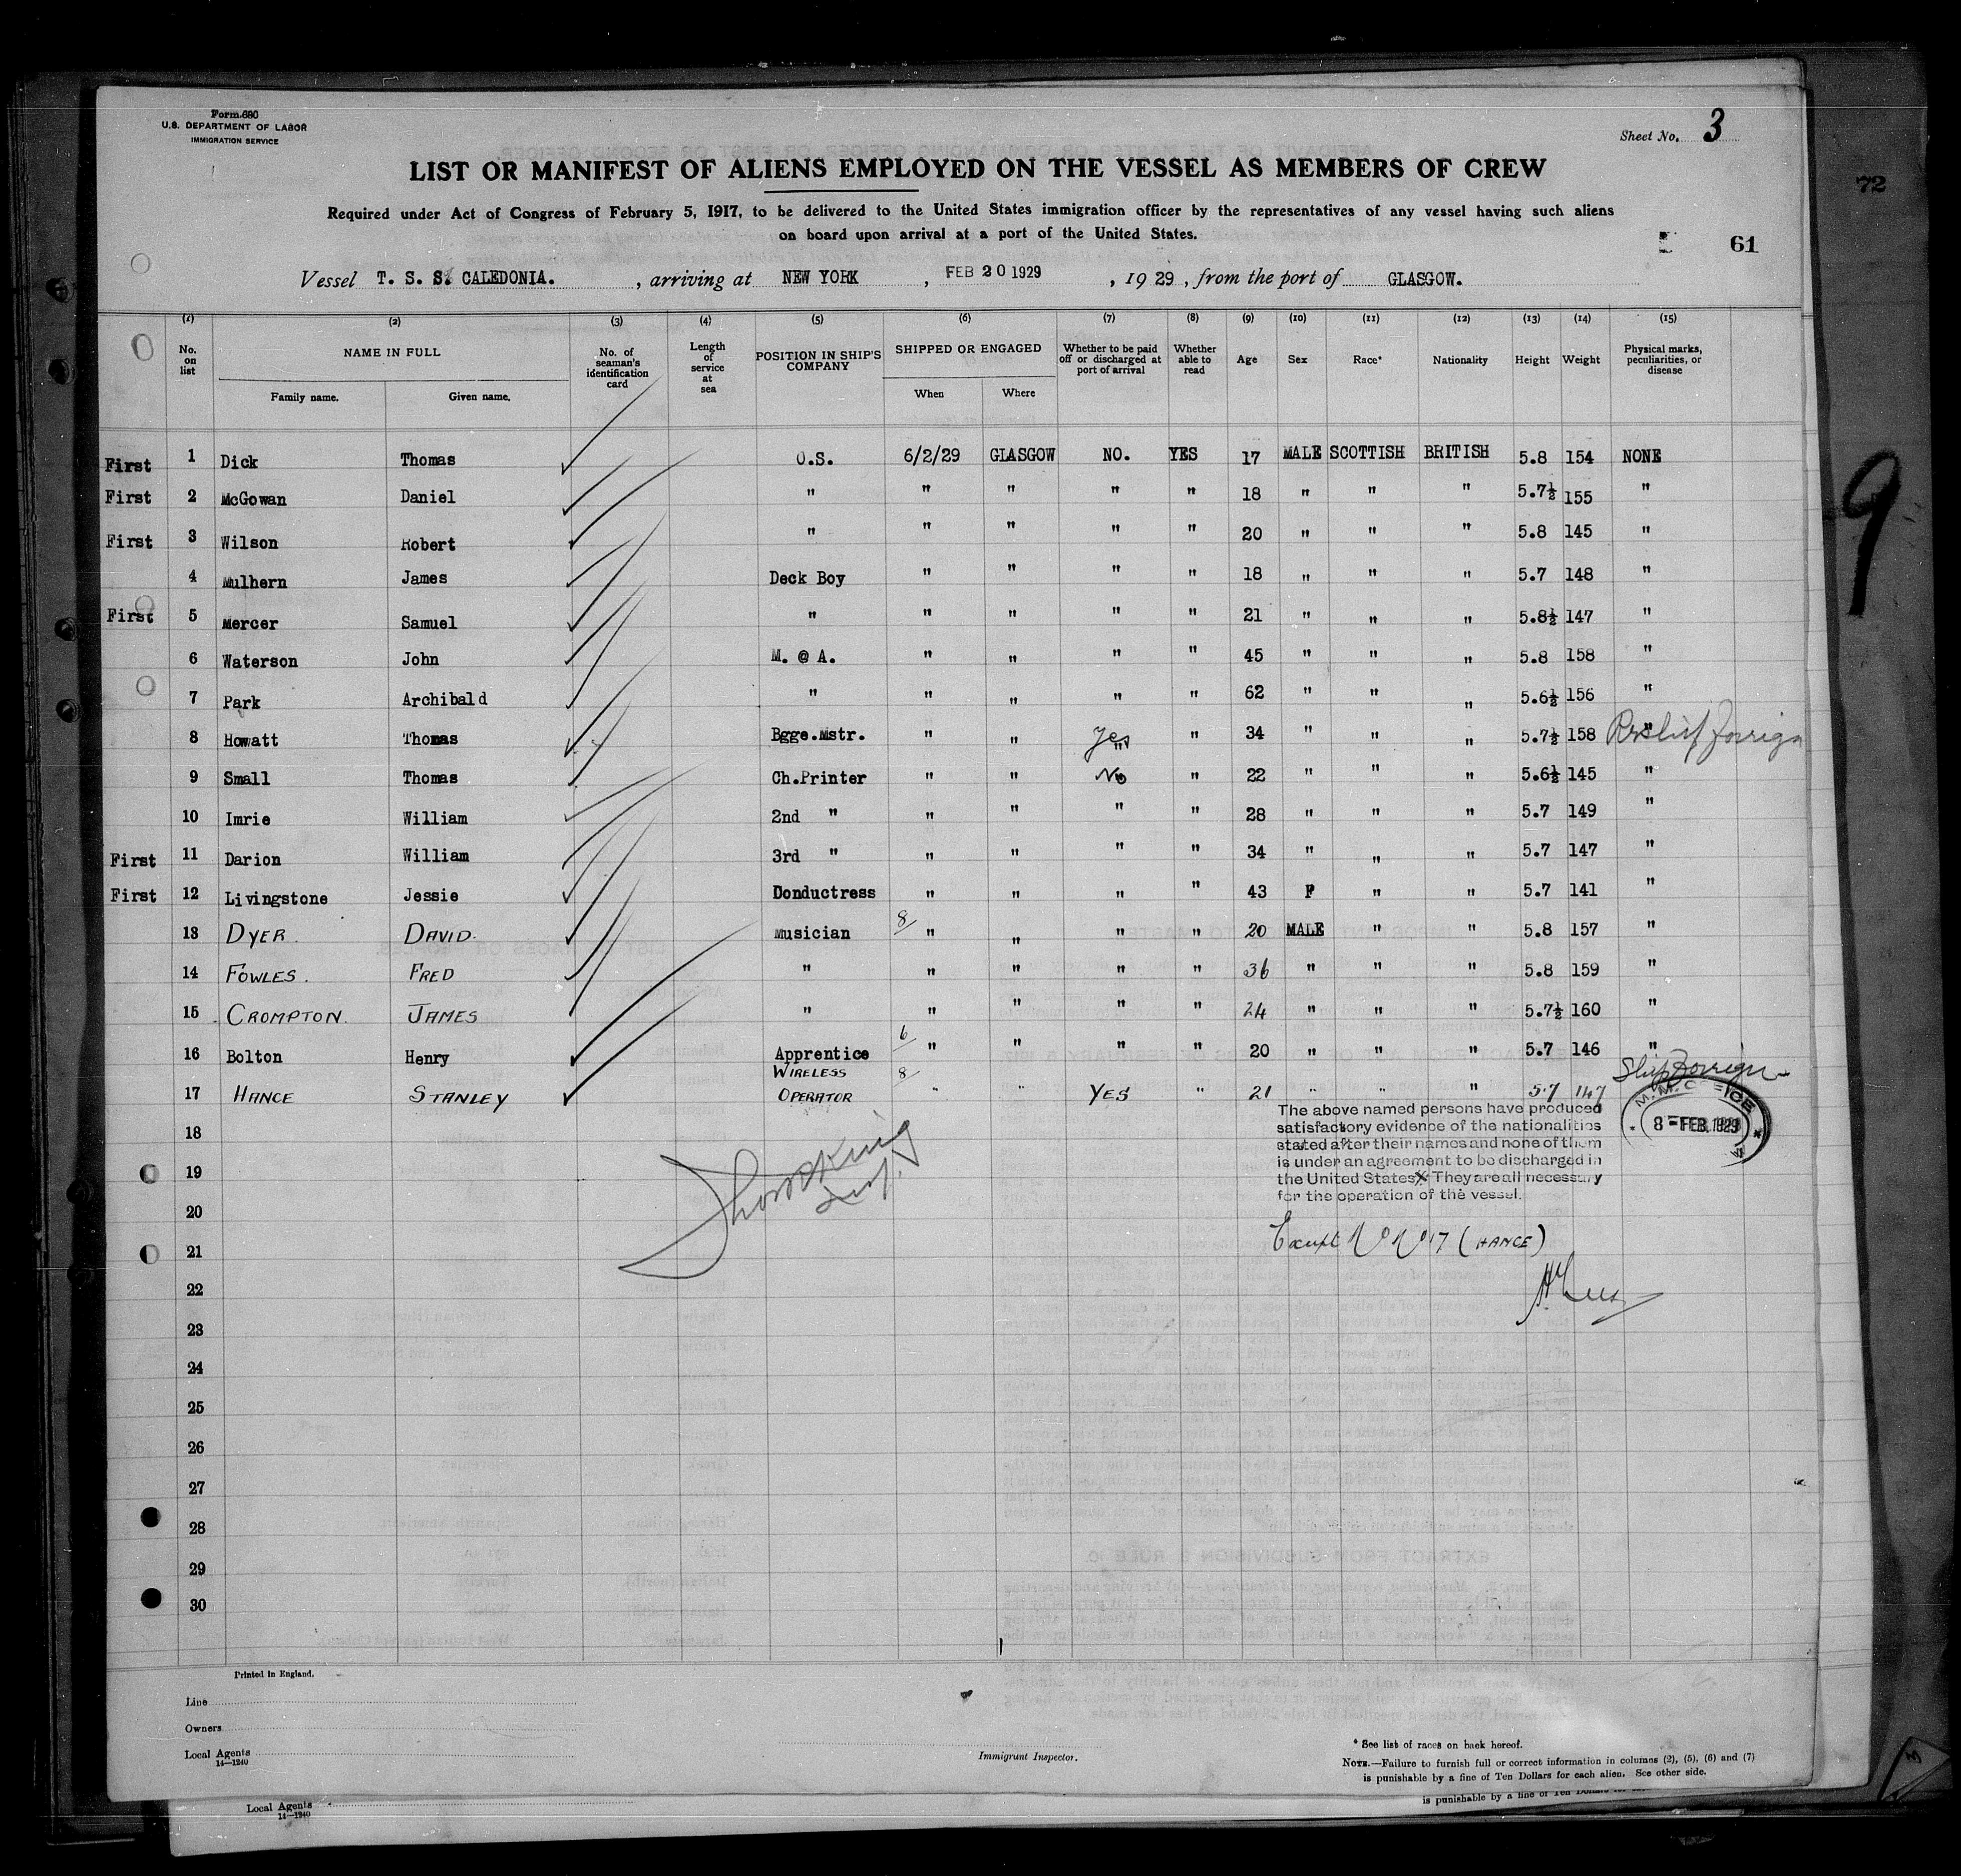 Form 680
U.S. DEPARTMENT OF LABOR
IMMIGRATION SERVICE
Sheet No. 3
LIST OR MANIFEST OF ALIENS EMPLOYED ON THE VESSEL AS MEMBERS OF CREW
72
Required under Act of Congress of February 5, 1917, to be delivered to the United States immigration officer by the representatives of any vessel having such aliens
on board upon arrival at a port of the United States.
61
Vessel T. S. S. CALEDONIA. , arriving at NEW YORK , FEB 20 1929 , 1929 , from the port of GLASGOW.
(1) (2) (3) (4) (5) (6) (7) (8) (9) (10) (11) (12) (13) (14) (15)
No. on list NAME IN FULL Family name. Given name. No. of seaman's identification card Length of service at sea POSITION IN SHIP'S COMPANY SHIPPED OR ENGAGED When Where Whether to be paid off or discharged at port of arrival Whether able to read Age Sex Race* Nationality Height Weight Physical marks, peculiarities, or disease
First 1 Dick Thomas O.S. 6/2/29 GLASGOW NO. YES 17 MALE SCOTTISH BRITISH 5.8 154 NONE
First 2 McGowan Daniel " " " " " 18 " " " 5.7½ 155 "
First 3 Wilson Robert " " " " " 20 " " " 5.8 145 "
4 Mulhern James Deck Boy " " " " 18 " " " 5.7 148 "
First 5 Mercer Samuel " " " " " 21 " " " 5.8½ 147 "
6 Waterson John M. @ A. " " " " 45 " " " 5.8 158 "
7 Park Archibald " " " " " 62 " " " 5.6½ 156 "
8 Howatt Thomas Bgge.Mstr. " " Yes " 34 " " " 5.7½ 158 " Foreign
9 Small Thomas Ch.Printer " " No " 22 " " " 5.6½ 145 "
10 Imrie William 2nd " " " " " 28 " " " 5.7 149 "
First 11 Darion William 3rd " " " " " 34 " " " 5.7 147 "
First 12 Livingstone Jessie Donductress " " " " 43 F " " 5.7 141 "
13 DYER DAVID. Musician 8/ " " " " 20 MALE " " 5.8 157 "
14 FOWLES. FRED " " " " " 36 " " " 5.8 159 "
15 CROMPTON. JAMES " " " " " 24 " " " 5.7½ 160 "
16 Bolton Henry Apprentice 6/ " " " " 20 " " " 5.7 146 "
17 HANCE STANLEY WIRELESS OPERATOR 8/ " " YES 21 " " " 5.7 147 Ship Foreign
The above named persons have produced
satisfactory evidence of the nationalities
stated after their names and none of them
is under an agreement to be discharged in
the United States X They are all necessary
for the operation of the vessel.
M.M. OFFICE
8 - FEB. 1929
Except No No 17 (HANCE)
18
19
20
21
22
23
24
25
26
27
28
29
30
9
Printed in England.
Line
Owners
Local Agents
14—1240
Immigrant Inspector.
* See list of races on back hereof.
NOTE.—Failure to furnish full or correct information in columns (2), (5), (6) and (7)
is punishable by a fine of Ten Dollars for each alien. See other side.
Local Agents
14—1240
is punishable by a fine of Ten Dollars